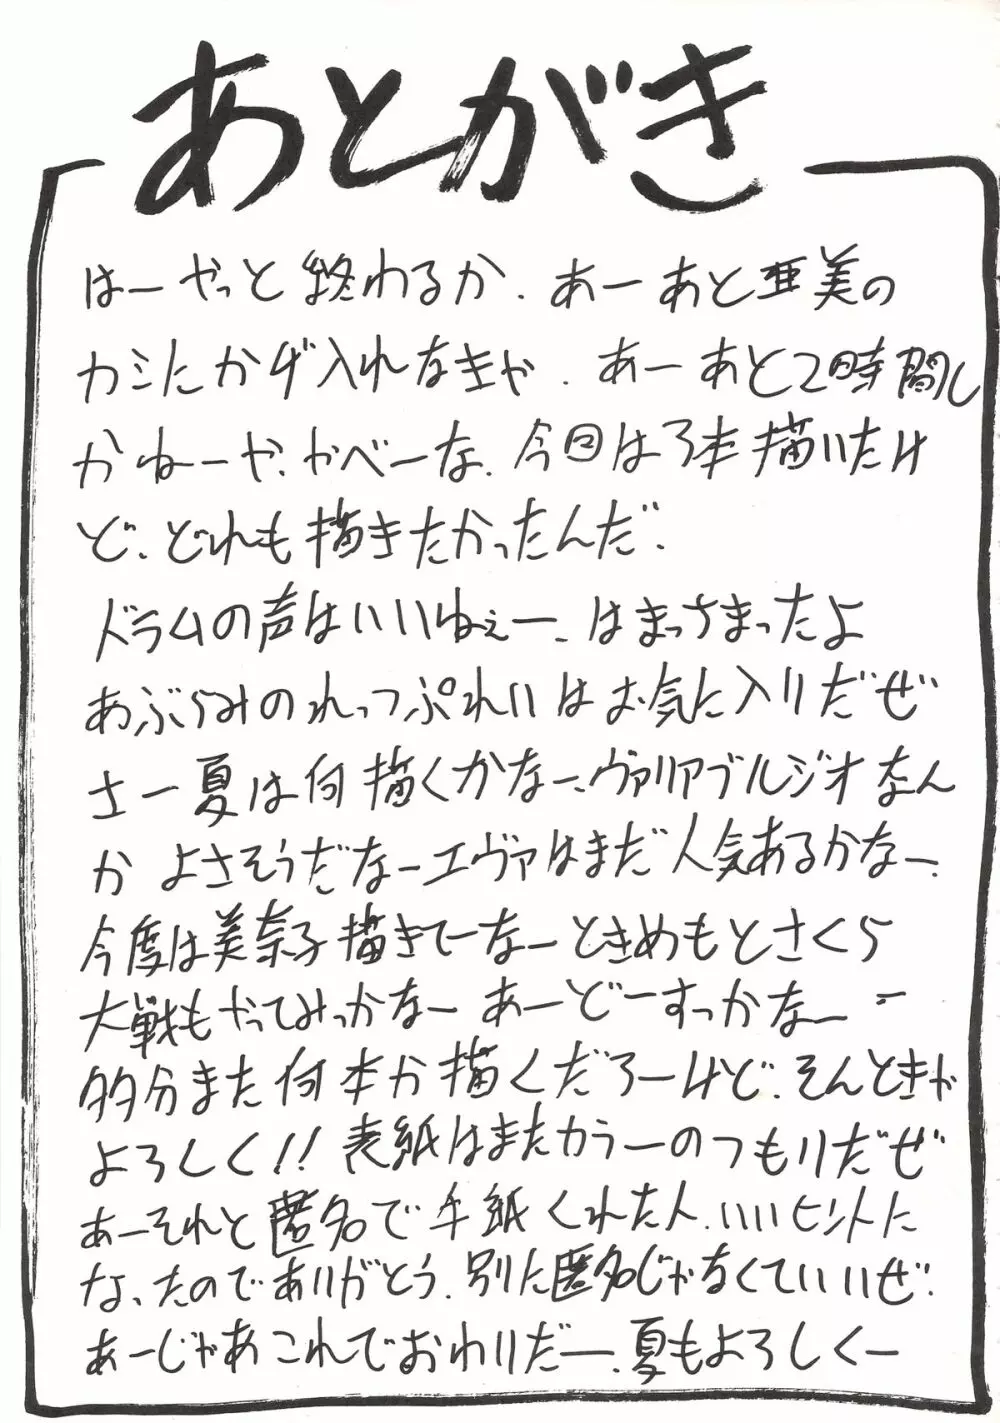 あとがき
はーやっと終わるか.あーあと亜美の
カミにかげ入れなきゃ.あーあと2時間し
かねーや.やべーな.今回は3本描いたけ
ど、どれも描きたかったんだ.
ドラムの声はいいねぇー.はまっさまったよ
あぶらみのれっつぷれいはお気に入りだぜ
さー夏は何描くかなー.ヴァリアブルジオなん
かよさそうだなーエヴァはまだ人気あるかなー.
今度は美奈子描きてーなーときめもとさくら
大戦もやってみっかなー あーどーすっかなー
多分また何本か描くだろーけど、そんときゃ
よろしく!!表紙はまたカラーのつもりだぜ
あーそれと匿名で手紙くれた人.いいヒントに
な、たのでありがとう.別に匿名じゃなくていいぜ.
あーじゃあこれでおわりだー.夏もよろしくー